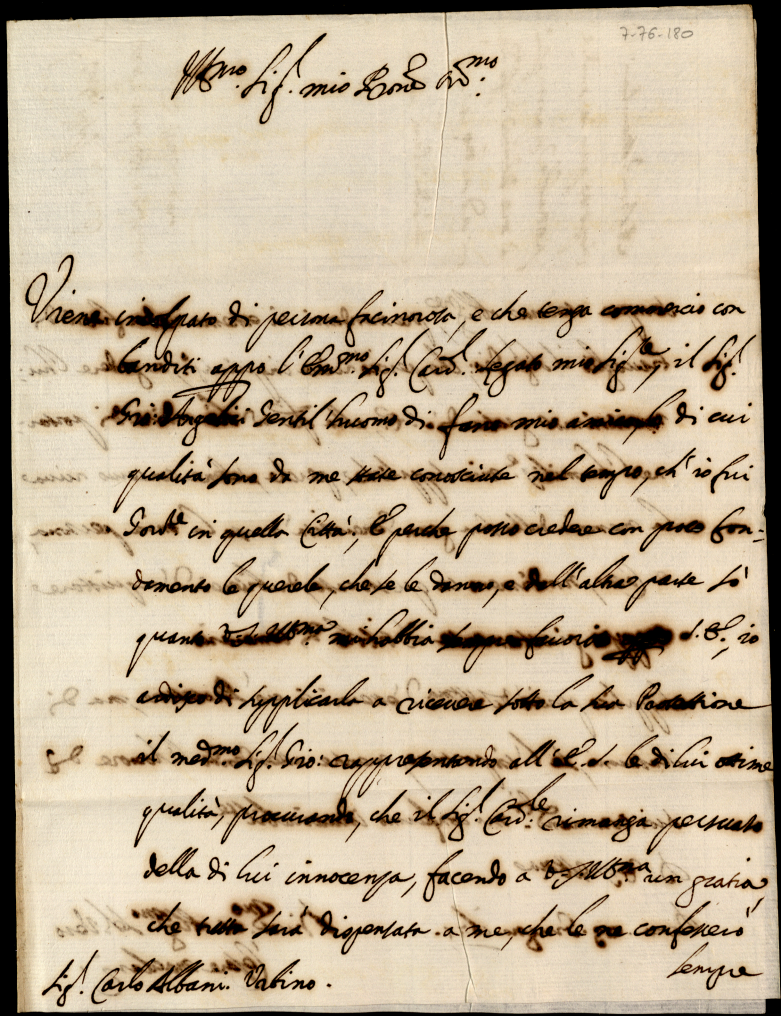 7-76-180
Ill.mo Sig.r mio P.rone Oss.mo
Viene incolpato di persona facinorosa, e che tenga commercio con
banditi appo l'Em.mo Sig.r Card.l Legato mio Sig.re, il Sig.r
Gio: Angelini Gentil'huomo di Fano mio, di cui
qualità sono da me state conosciute nel tempo, ch'io fui
in quella Città, E perche posso credere con poco fon-
damento le querele, che se le danno, e dall'altra parte sò
quanto V.S. Ill.ma mi habbia S.E., io
ardisco di supplicarla a ricevere sotto la sua Protettione
il med.mo Sig.r Gio: rappresentando all'E.S. le di lui ottime
qualità, procurando, che il Sig.r Card.le rimanga persuaso
della di lui innocenza, facendo a V.S. Ill.ma un gratia,
che tutta sarà dispensata a me, che le ne confesserò
sempre
Sig.r Carlo Albani. Urbino.